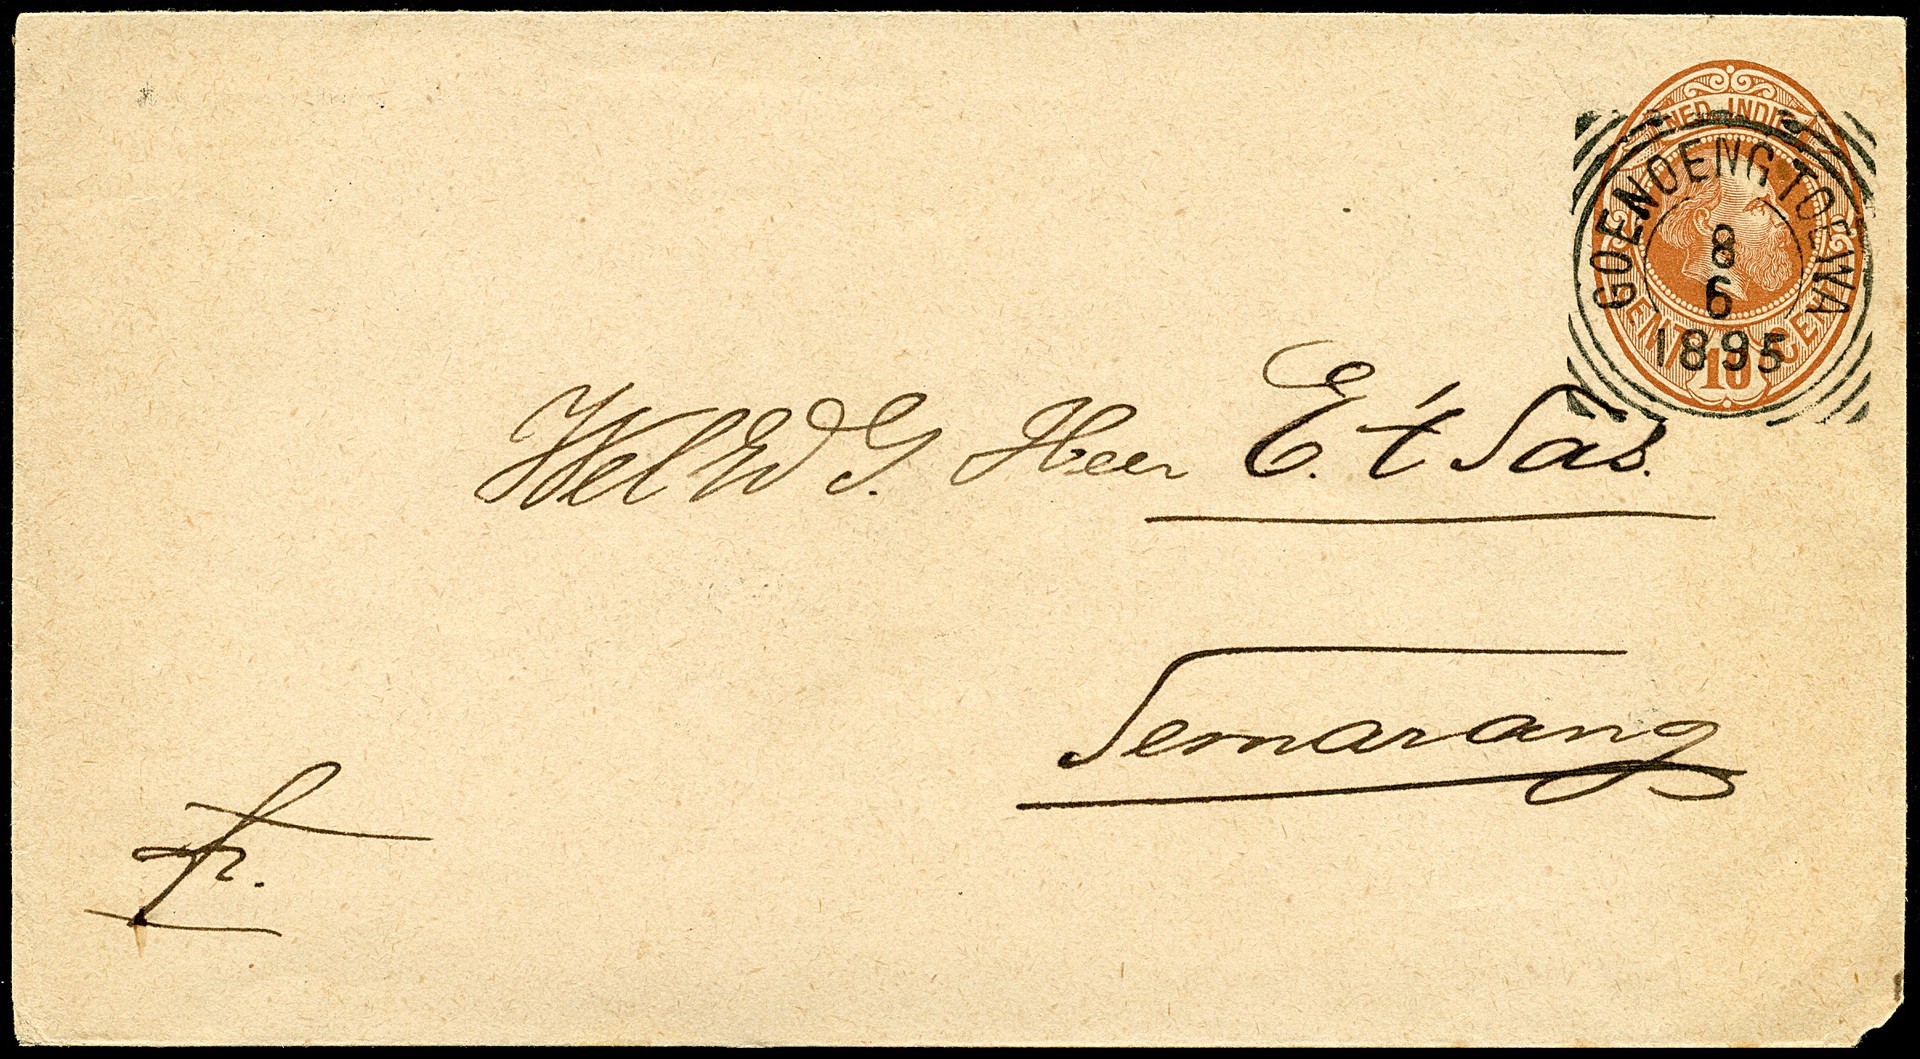 NED. INDIE
GOENOENG TOEWA
8
6
1895
CENT 10 CENT
Wel Ed G. Heer E. 't Sas.
Semarang
fr.